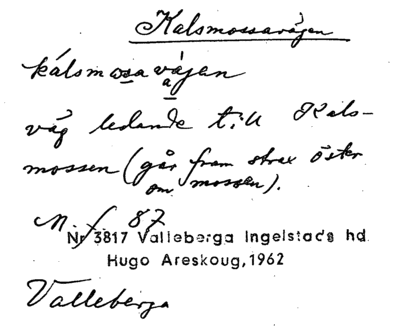 Kalsmossavägen
kálsmosavä̀jen
a
väg ledande till Kals-
mossen (går fram strax öster
om mossen).
M. f. 87
Nr 3817 Valleberga Ingelstads hd.
Hugo Areskoug, 1962
Valleberga